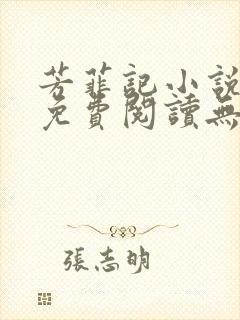 芳菲記小說
免費閱讀無
張志明